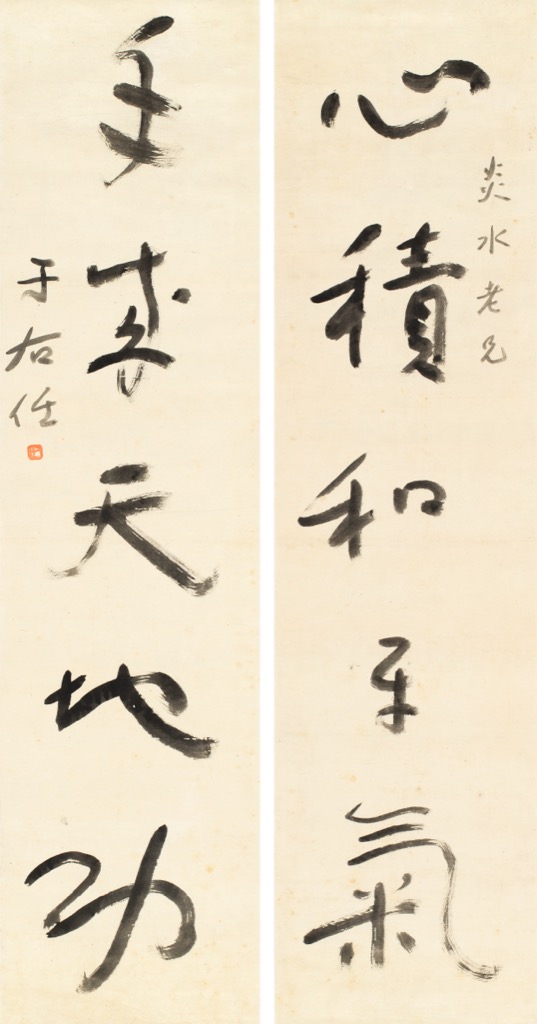 炎水老兄
心積和平氣
手成天地功
于右任